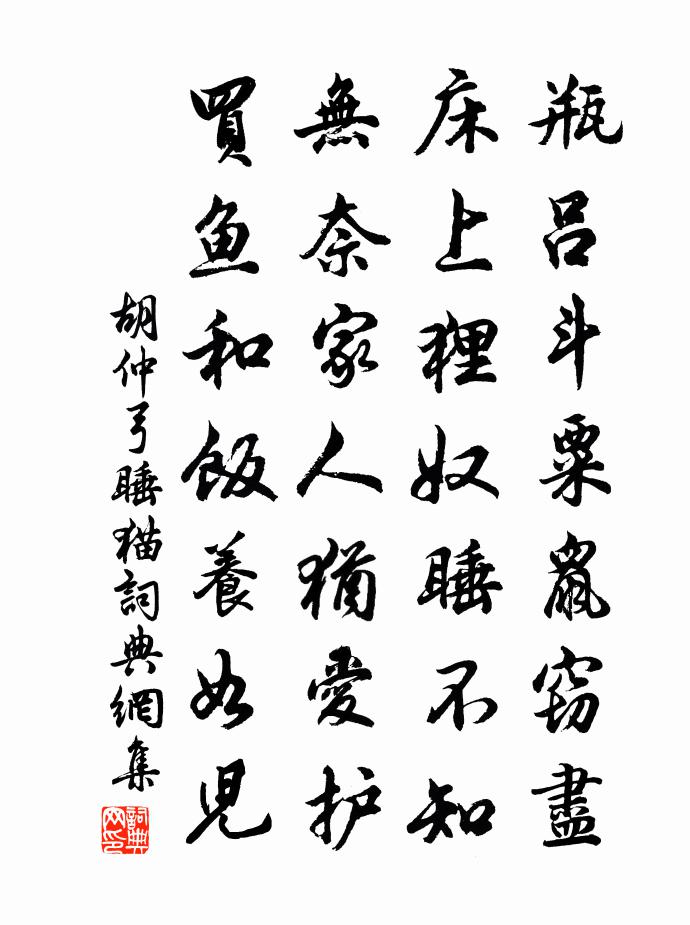 瓶吕斗粟鼠窃盡
床上狸奴睡不知
無奈家人猶愛护
買鱼和飯養如児
胡仲弓睡猫詞典網集
詞典网印